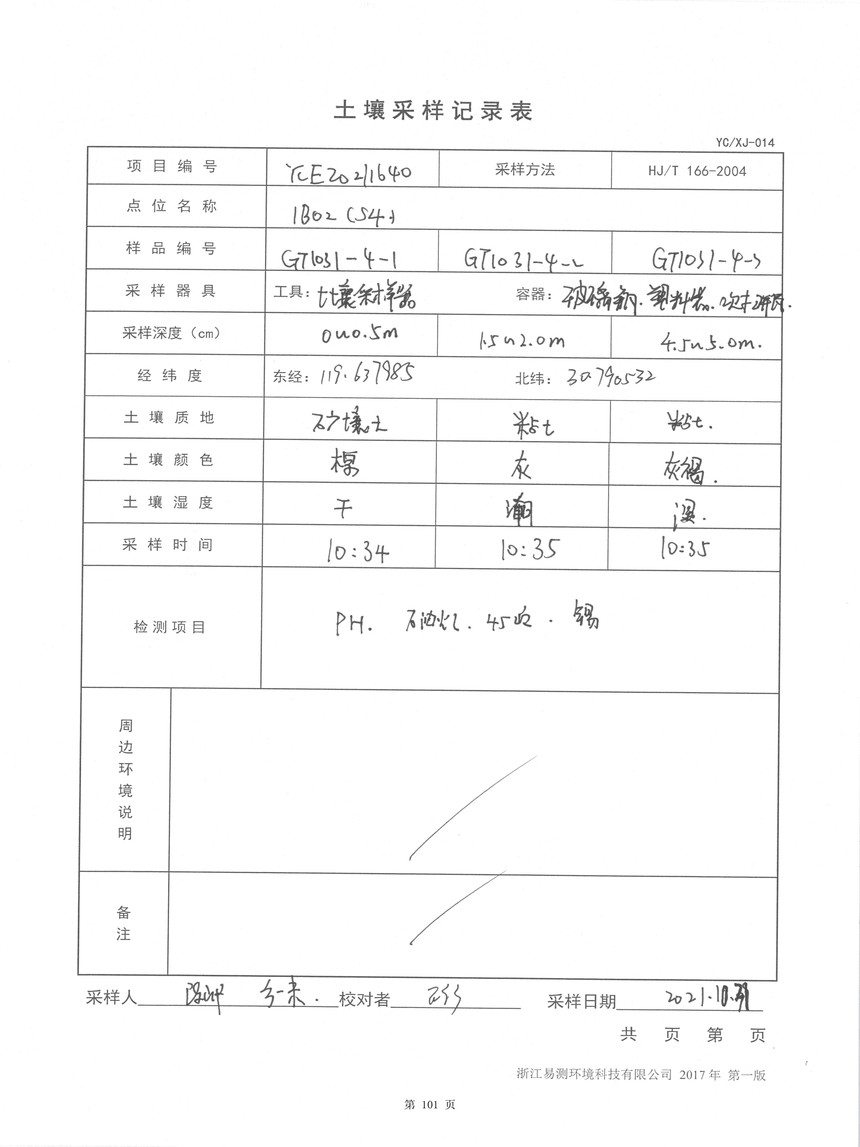 土壤采样记录表
YC/XJ-014
项目编号 YCE20211640 采样方法 HJ/T 166-2004
点位名称 1B02 (S4)
样品编号 GT1031-4-1 GT1031-4-2 GT1031-4-3
采样器具 工具：土壤采样器 容器：玻璃瓶.塑料袋.
采样深度（cm） 0~0.5m 1.5~2.0m 4.5~5.0m.
经纬度 东经：119.637985 北纬：30.790532
土壤质地 砂壤土 粘土 粘土.
土壤颜色 棕 灰 灰褐.
土壤湿度 干 潮 湿.
采样时间 10:34 10:35 10:35
检测项目 PH. 石油烃. 45项. 锡
周边环境说明
备注
采样人 校对者 采样日期 2021.10.31
共 页 第 页
浙江易测环境科技有限公司 2017年 第一版
第 101 页